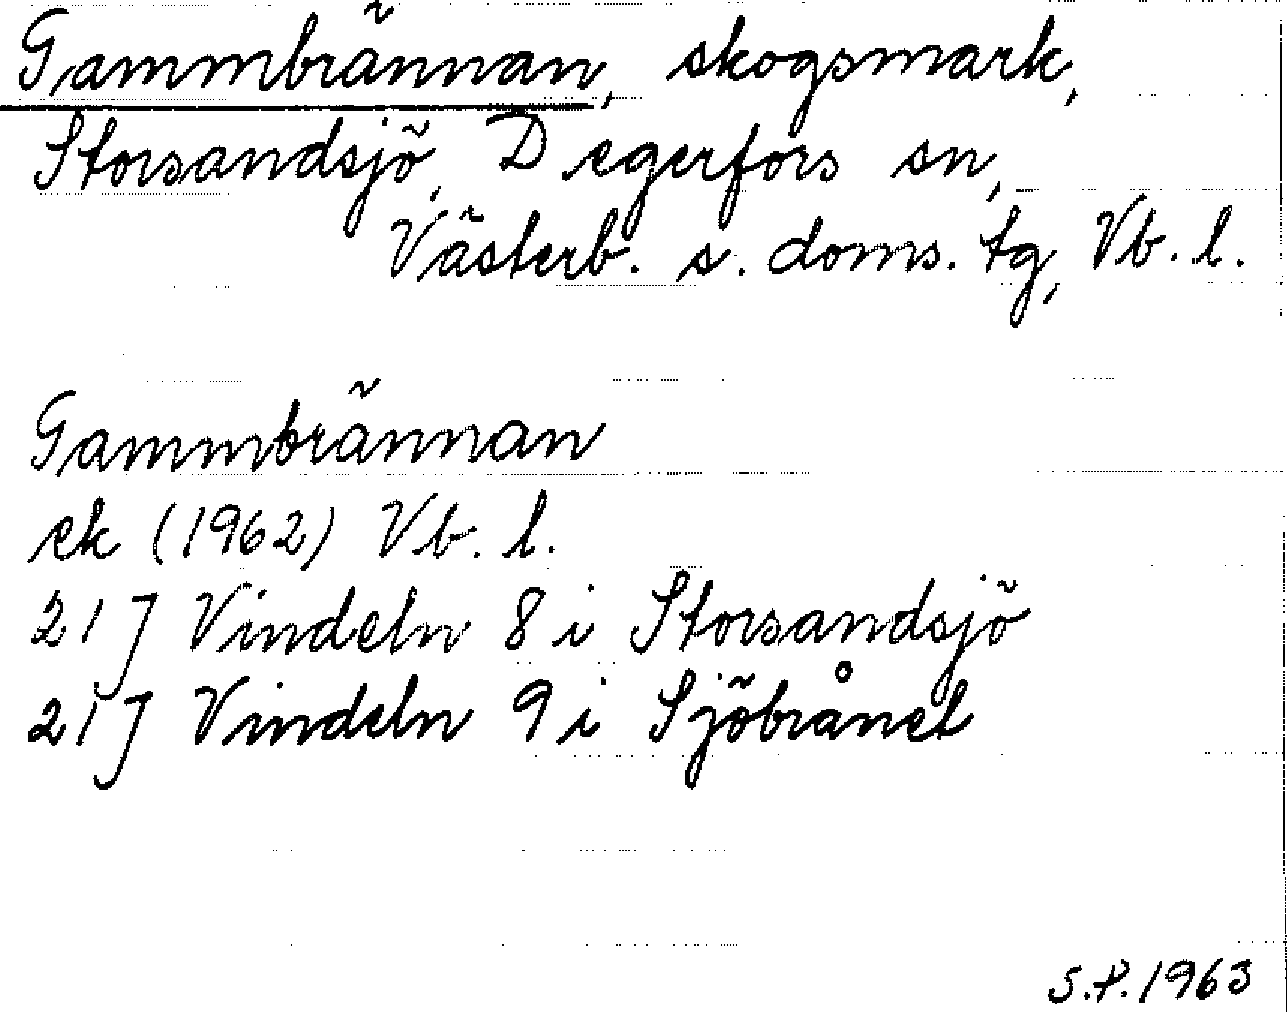 Gammbrännan, skogsmark,
Storsandsjö, Degerfors sn,
Västerb. s. doms. tg, Vb. l.
Gammbrännan
ek (1962) Vb. l.
21 J Vindeln 8 i Storsandsjö
21 J Vindeln 9 i Sjöbrånet
S.P. 1963